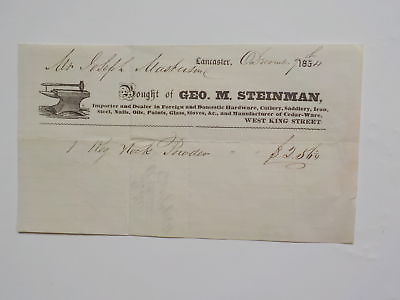 Lancaster, December 9th 1854
Mr Joseph Masterson
Bought of GEO. M. STEINMAN,
Importer and Dealer in Foreign and Domestic Hardware, Cutlery, Saddlery, Iron,
Steel, Nails, Oils, Paints, Glass, Stoves, &c., and Manufacturer of Cedar-Ware,
WEST KING STREET
1 Keg Rock Powder " " $ 2.860